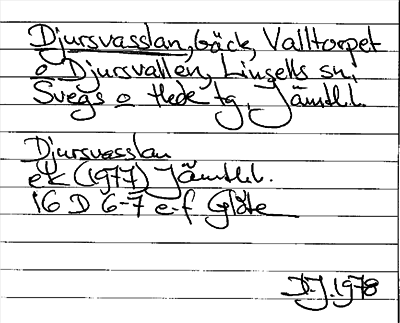 Djursvasslan, bäck, Valltorpet
o Djursvallen, Linsells sn,
Svegs o Hede tg, Jämtl.l.
Djursvasslan
ek (1977) Jämtl.l.
16 D 6-7 e-f Glöte
D-J. 1978